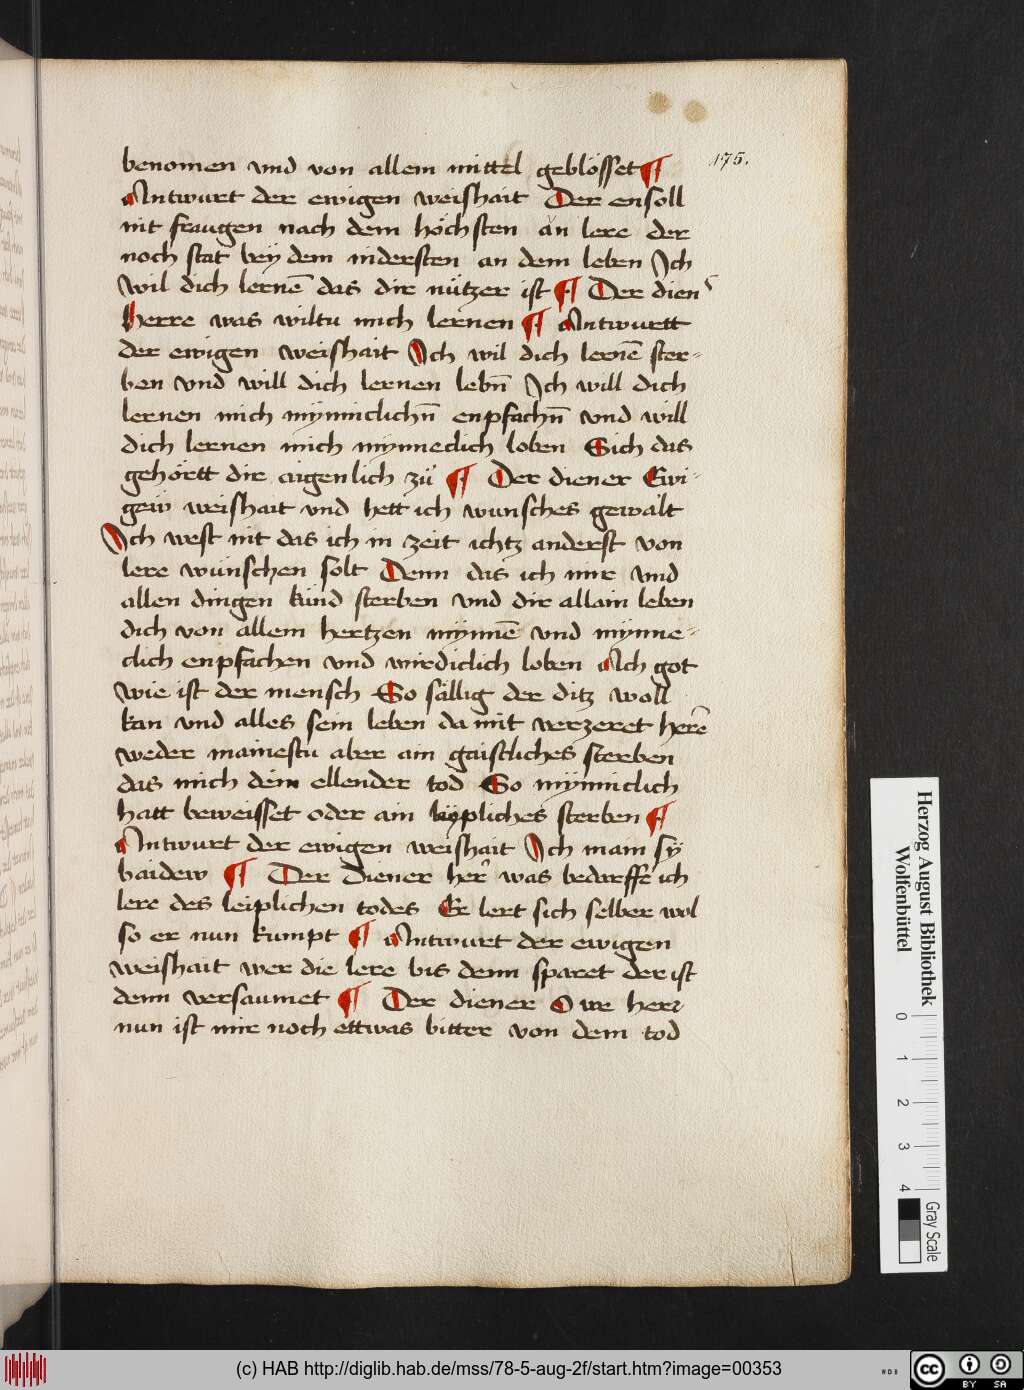 175.
benomen vnd von allem mittel geblösset ¶
Antwurt der ewigen weishait Der ensoll
nit fraugen nach dem höchsten an lere der
noch stat bey dem nidersten an dem leben Ich
wil dich lernē das dir nützer ist ¶ Der dien
herre was wiltu mich lernen ¶ Antwurtt
der ewigen weishait Ich wil dich lernē ster-
ben vnd will dich lernen lebn̄ Ich will dich
lernen mich mÿnniclichn̄ enpfachn̄ vnd will
dich lernen mich mÿnneclich loben Sich das
gehörtt dir aigenlich zů ¶ Der diener Ewi-
gew weishait vnd hett ich wunsches gewalt
Ich west nit das ich in zeit ichtz anderst von
lere wünschen solt Denn das ich mir vnd
allen dingen künd sterben vnd dir allain leben
dich von allem hertzen mÿnnē vnd mÿnne-
clich enpfachen vnd wirdiclich loben Ach got
wie ist der mensch So sällig der ditz woll
kan vnd alles sein leben da mit verzeret herē
weder mainestu aber ain gaistliches sterben
das mich dein ellender tod So mÿnniclich
hatt beweisset oder ain lÿpliches sterben ¶
Antwurt der ewigen weishait Ich main sÿ
baidew ¶ Der Diener her was bedarffe ich
lere des leiplichen todes Er lert sich selber wol
so er nun kumpt ¶ Antwurt der ewigen
weishait wer die lere bis denn sparet der ist
denn versaumet ¶ Der diener O we herr
nun ist mir noch ettwas bitter von dem tod
Herzog August Bibliothek
Wolfenbüttel
0
1
2
3
4
Gray Scale
(c) HAB http://diglib.hab.de/mss/78-5-aug-2f/start.htm?image=00353
cc BY SA